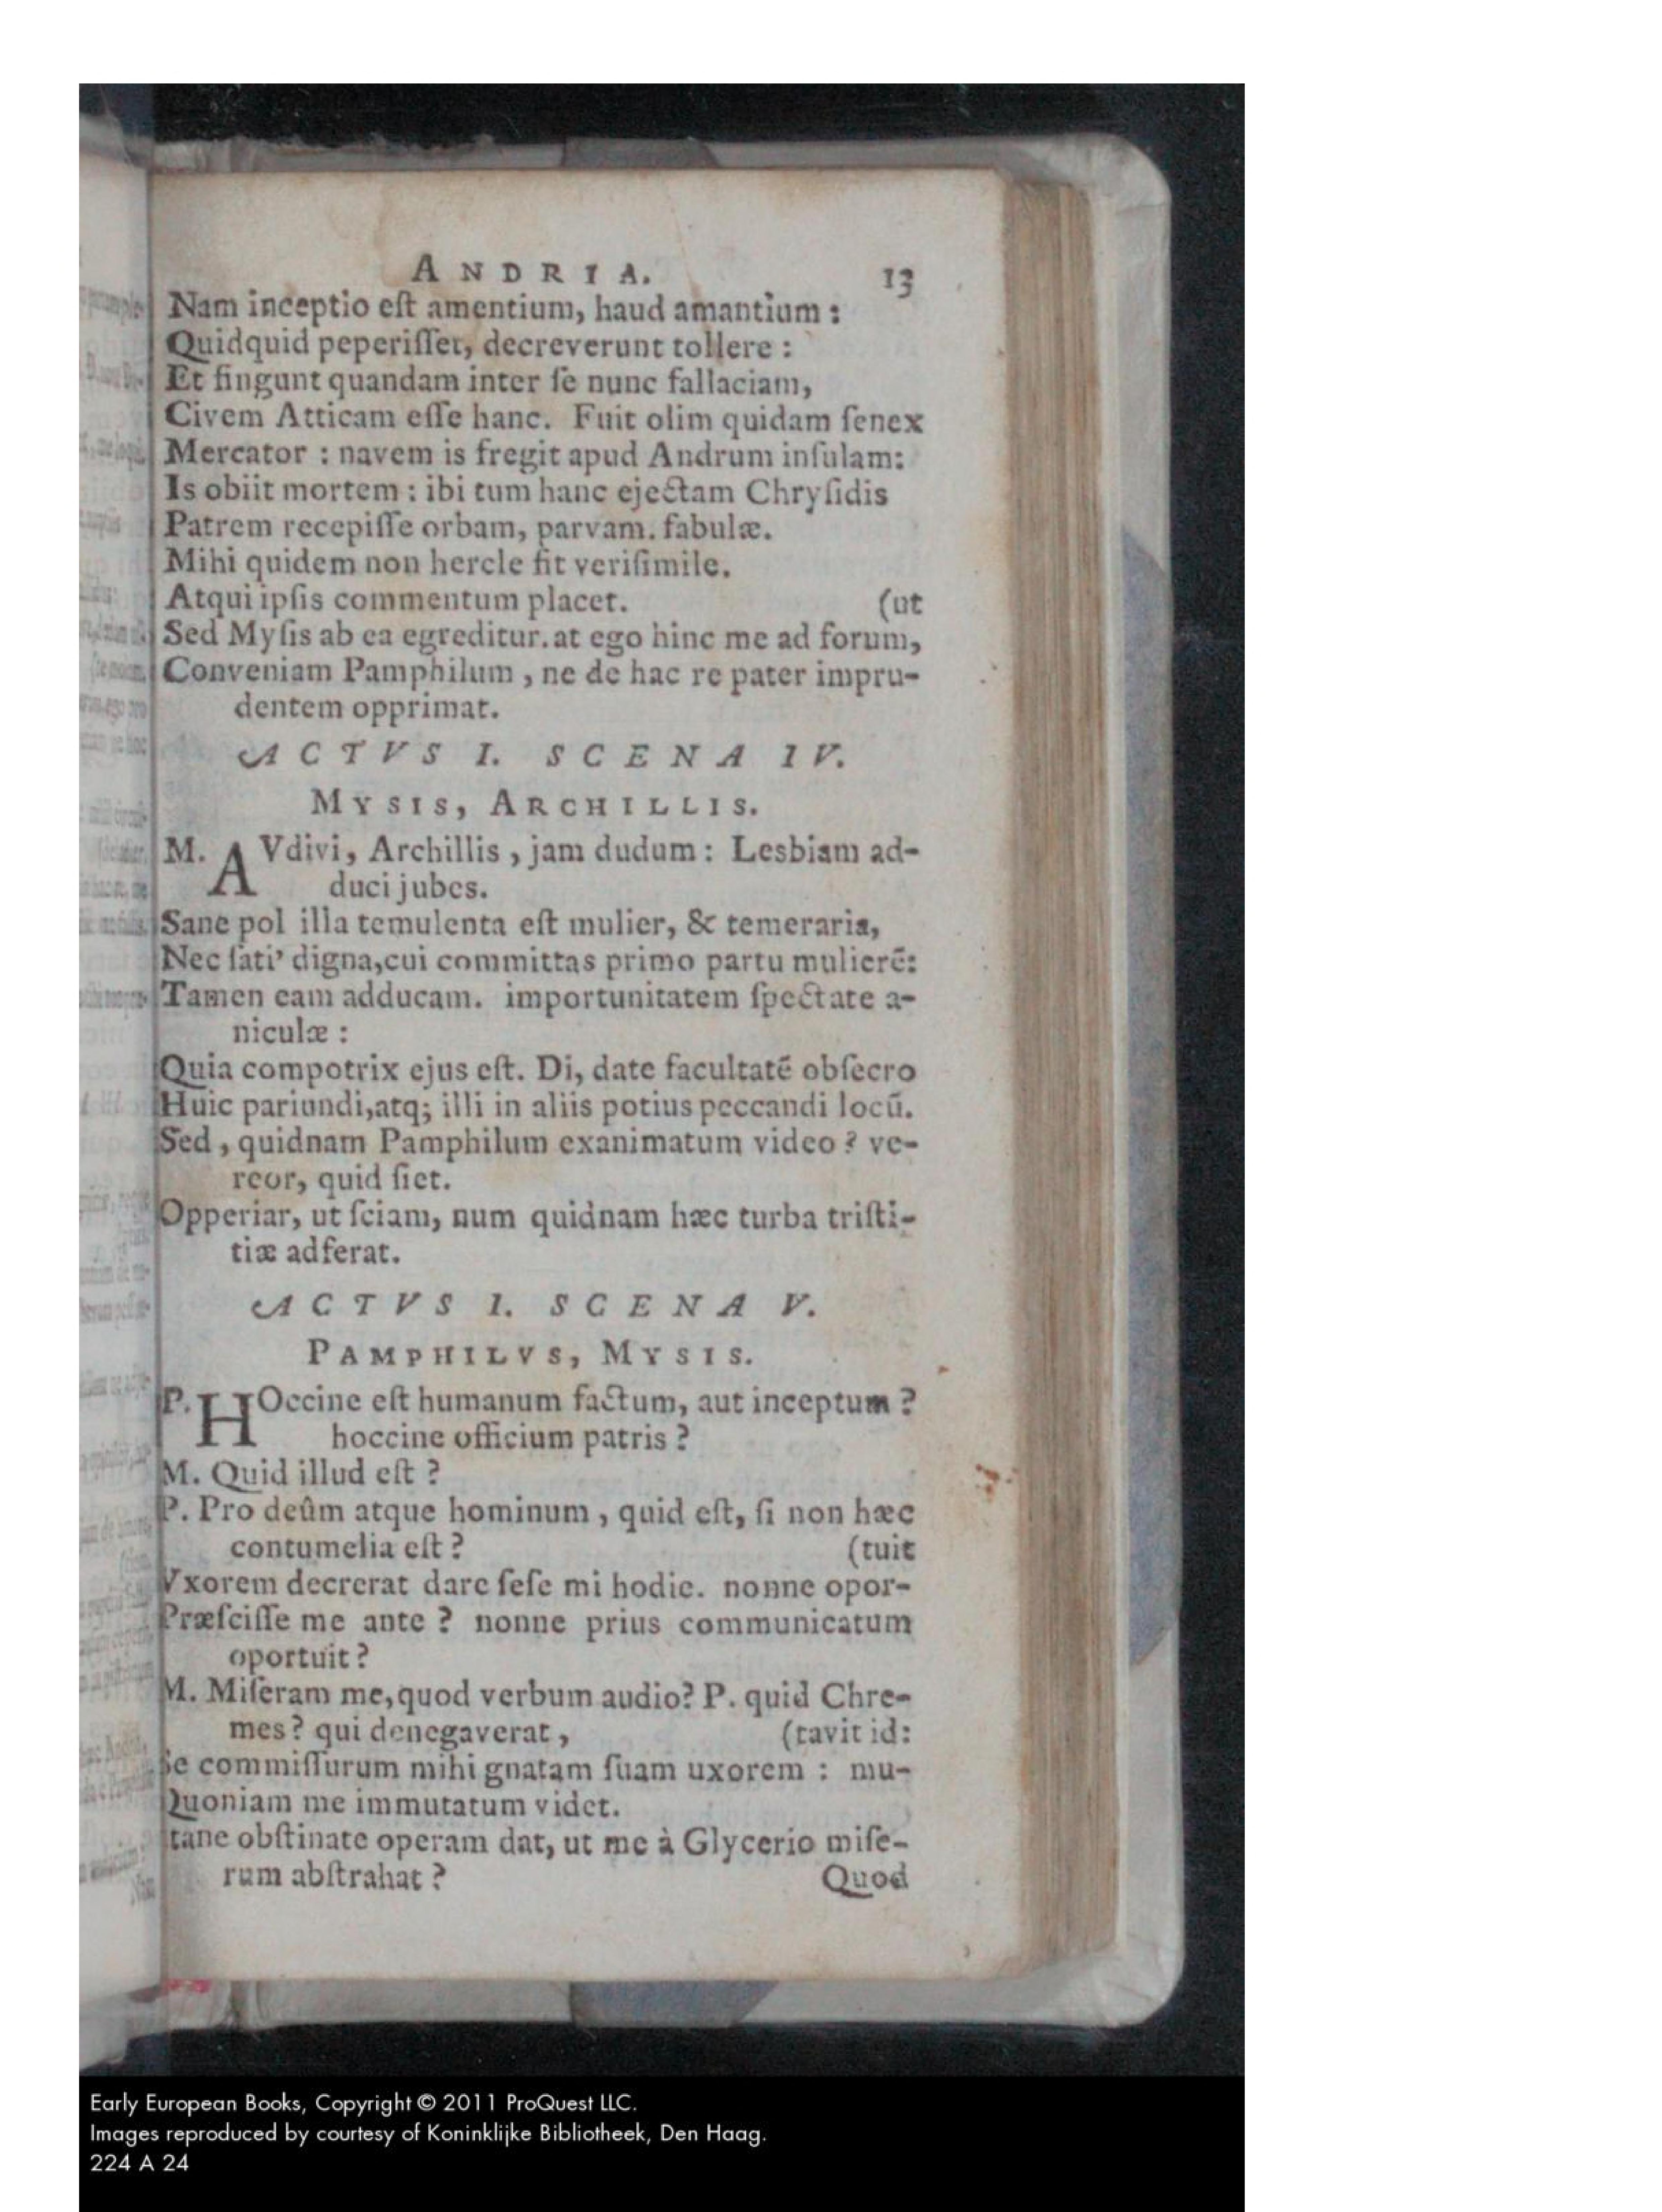 ANDRIA. 13
Nam inceptio eſt amentium, haud amantium :
Quidquid peperiſſet, decreverunt tollere :
Et fingunt quandam inter ſe nunc fallaciam,
Civem Atticam eſſe hanc. Fuit olim quidam ſenex
Mercator : navem is fregit apud Andrum inſulam:
Is obiit mortem : ibi tum hanc ejectam Chryſidis
Patrem recepiſſe orbam, parvam. fabulæ.
Mihi quidem non hercle fit veriſimile.
Atqui ipſis commentum placet. (ut
Sed Myſis ab ea egreditur. at ego hinc me ad forum,
Conveniam Pamphilum , ne de hac re pater impru-
dentem opprimat.
ACTVS I. SCENA IV.
MYSIS, ARCHILLIS.
M. AVdivi, Archillis , jam dudum : Lesbiam ad-
duci jubes.
Sane pol illa temulenta eſt mulier, & temeraria,
Nec ſati’ digna,cui committas primo partu mulierē:
Tamen eam adducam. importunitatem ſpectate a-
niculæ :
Quia compotrix ejus eſt. Di, date facultatē obſecro
Huic pariundi,atq; illi in aliis potius peccandi locū.
Sed , quidnam Pamphilum exanimatum video ? ve-
reor, quid ſiet.
Opperiar, ut ſciam, num quidnam hæc turba triſti-
tiæ adferat.
ACTVS I. SCENA V.
PAMPHILVS, MYSIS.
P. HOccine eſt humanum factum, aut inceptum ?
hoccine officium patris ?
M. Quid illud eſt ?
P. Pro deûm atque hominum , quid eſt, ſi non hæc
contumelia eſt ? (tuit
Vxorem decrerat dare ſeſe mi hodie. nonne opor-
Præſciſſe me ante ? nonne prius communicatum
oportuit ?
M. Miſeram me, quod verbum audio? P. quid Chre-
mes? qui denegaverat , (tavit id:
Se commiſſurum mihi gnatam ſuam uxorem : mu-
Quoniam me immutatum videt.
Itane obſtinate operam dat, ut me à Glycerio miſe-
rum abſtrahat ? Quod
Early European Books, Copyright © 2011 ProQuest LLC.
Images reproduced by courtesy of Koninklijke Bibliotheek, Den Haag.
224 A 24